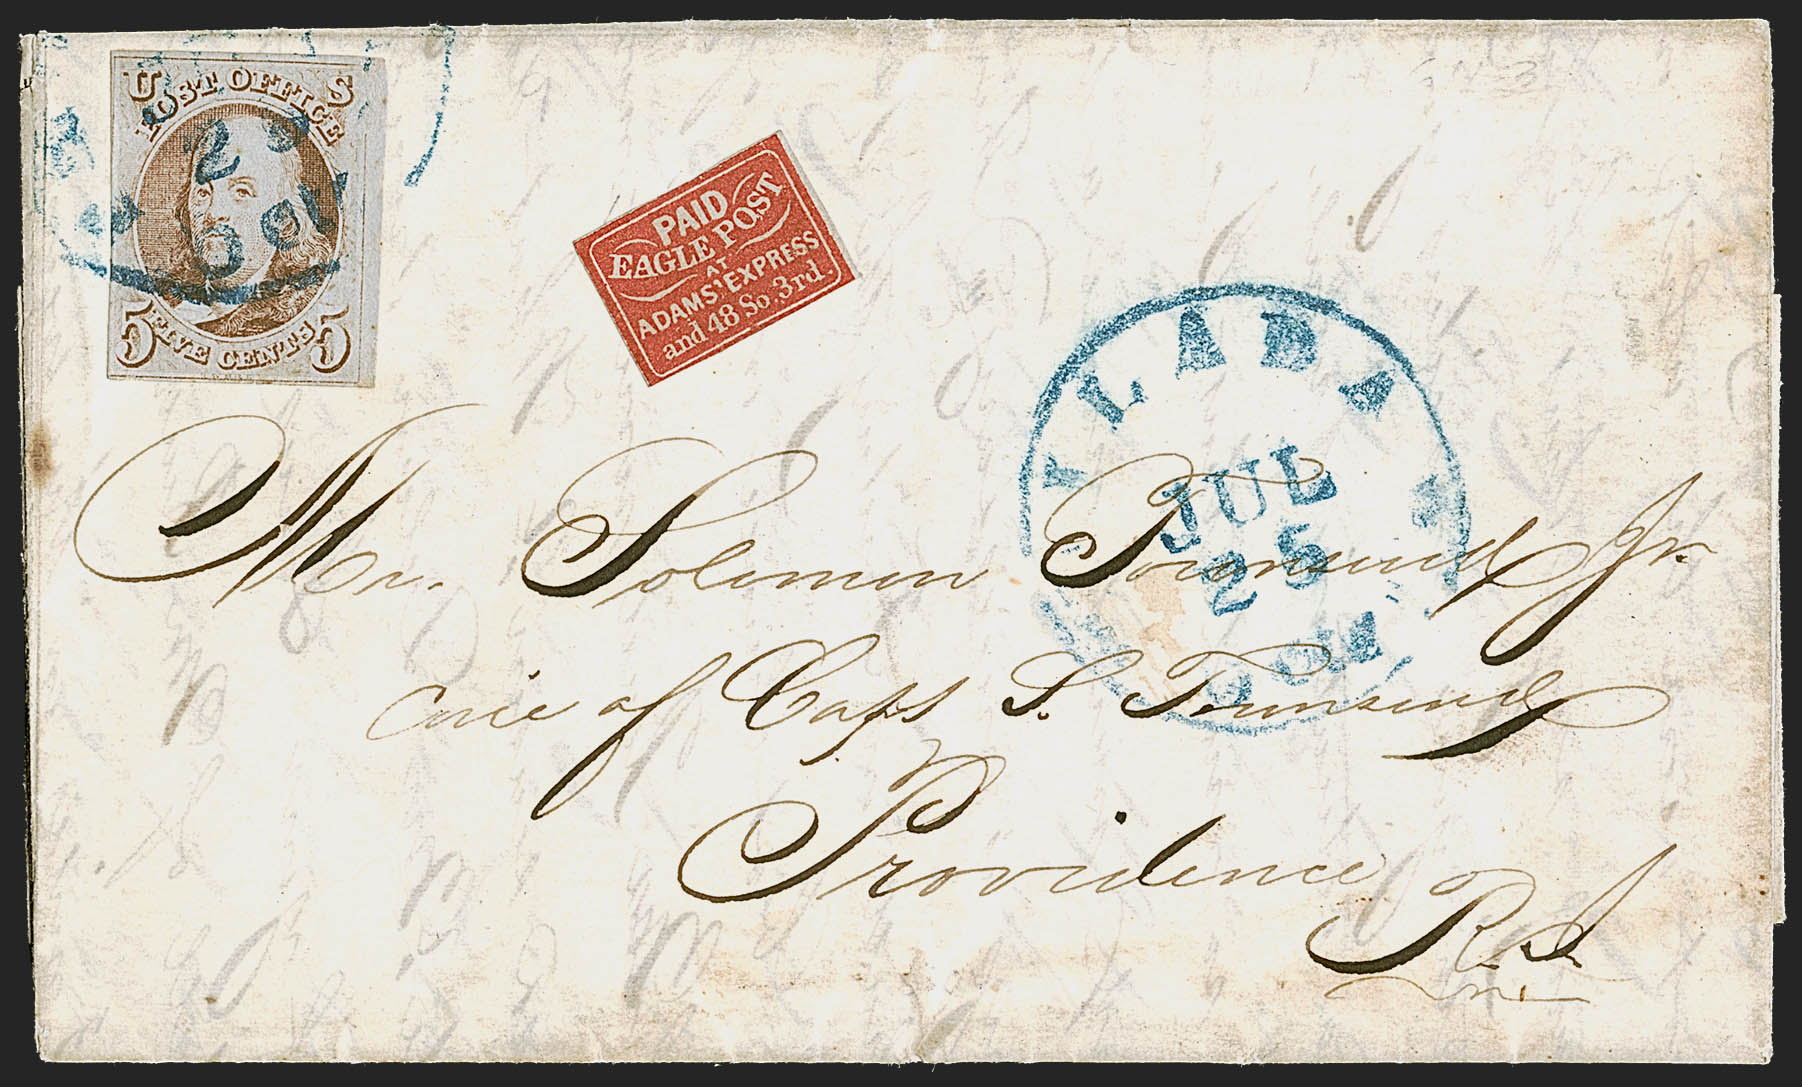 U S
POST OFFICE
5 FIVE CENTS 5
PAID
EAGLE POST
AT
ADAMS' EXPRESS
and 48 So. 3rd.
ILADA
JUL
25
Mr. Solomon Townsend Jr.
Care of Capt S. Townsend
Providence
R.I.